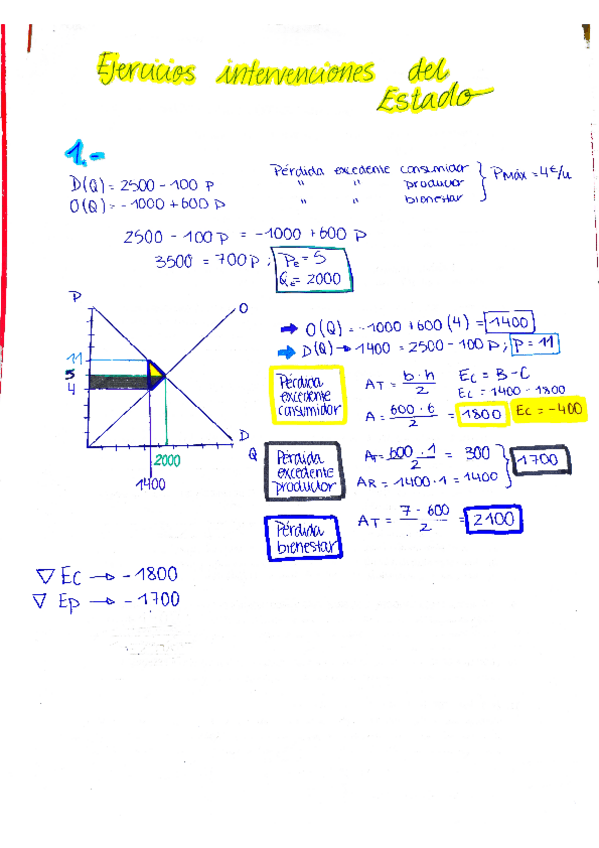 Ejercicios intervenciones del
Estado
1.-
D(Q) = 2500 - 100 P
O(Q) = -1000 + 600 P
Pérdida excedente consumidor
" " productor
" " bienestar
PMáx = 4€/u
2500 - 100 P = -1000 + 600 P
3500 = 700 P ; Pe = 5
Qe = 2000
P
O
11
5
4
D
Q
2000
1400
→ O(Q) = -1000 + 600 (4) = 1400
→ D(Q) → 1400 = 2500 - 100 P ; P = 11
Pérdida excedente consumidor
AT = b · h / 2
EC = B - C
EC = 1400 - 1800
A = 600 · 6 / 2 = 1800
EC = -400
Pérdida excedente productor
AT = 600 · 1 / 2 = 300
AR = 1400 · 1 = 1400
1700
Pérdida bienestar
AT = 7 · 600 / 2 = 2100
▽ EC → -1800
▽ Ep → -1700